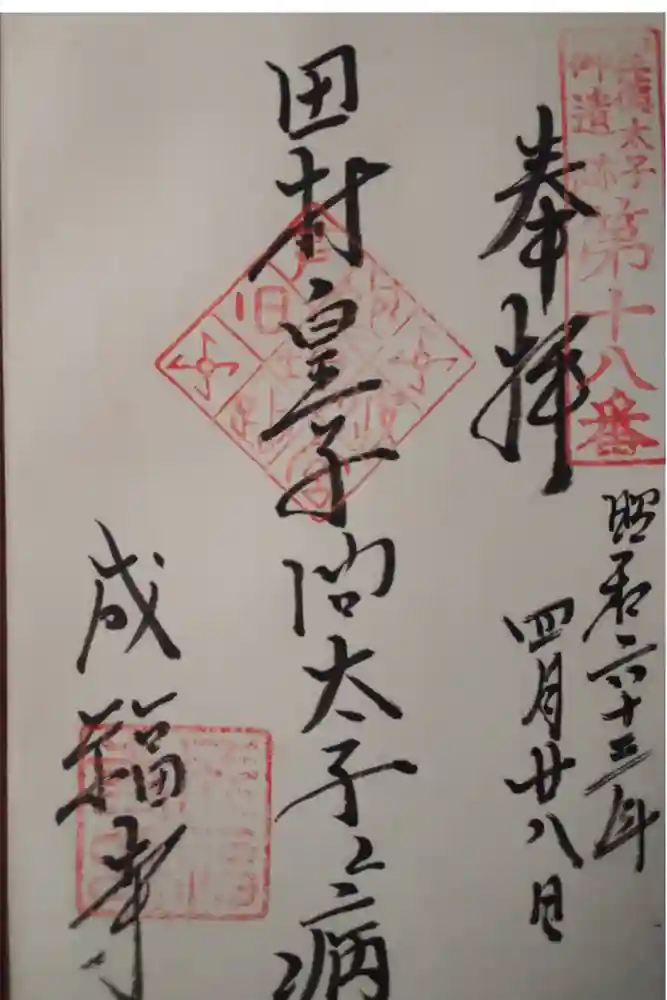 聖徳太子
御遺跡
第十八番
奉拝
昭和六十三年
四月廿八日
田村皇子問太子之病
旧跡
成福寺